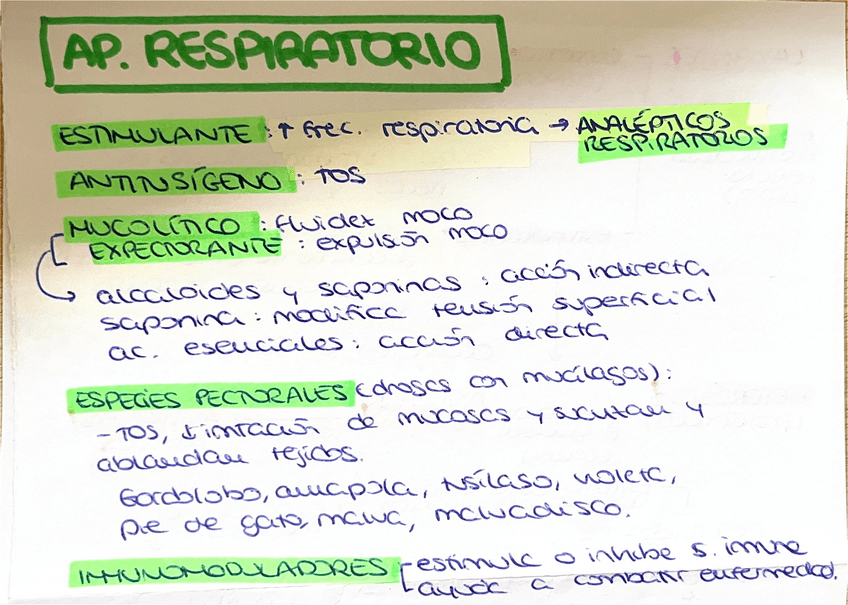 AP. RESPIRATORIO
ESTIMULANTE : ↑ frec. respiratoria → ANALÉPTICOS
RESPIRATORIOS
ANTITUSÍGENO : TOS
MUCOLÍTICO : fluidez moco
EXPECTORANTE : expulsión moco
alcaloides y saponinas : acción indirecta
saponina : modifica tensión superficial
ac. esenciales : acción directa
ESPECIES PECTORALES (drogas con mucílagos) :
- TOS, ↓ irritación de mucosas y suavizan y
ablandan tejidos.
Gordolobo, amapola, tusílago, violeta,
pie de gato, malva, malvavisco.
INMUNOMODULADORES - estimula o inhibe s. inmune
- ayuda a combatir enfermedad.